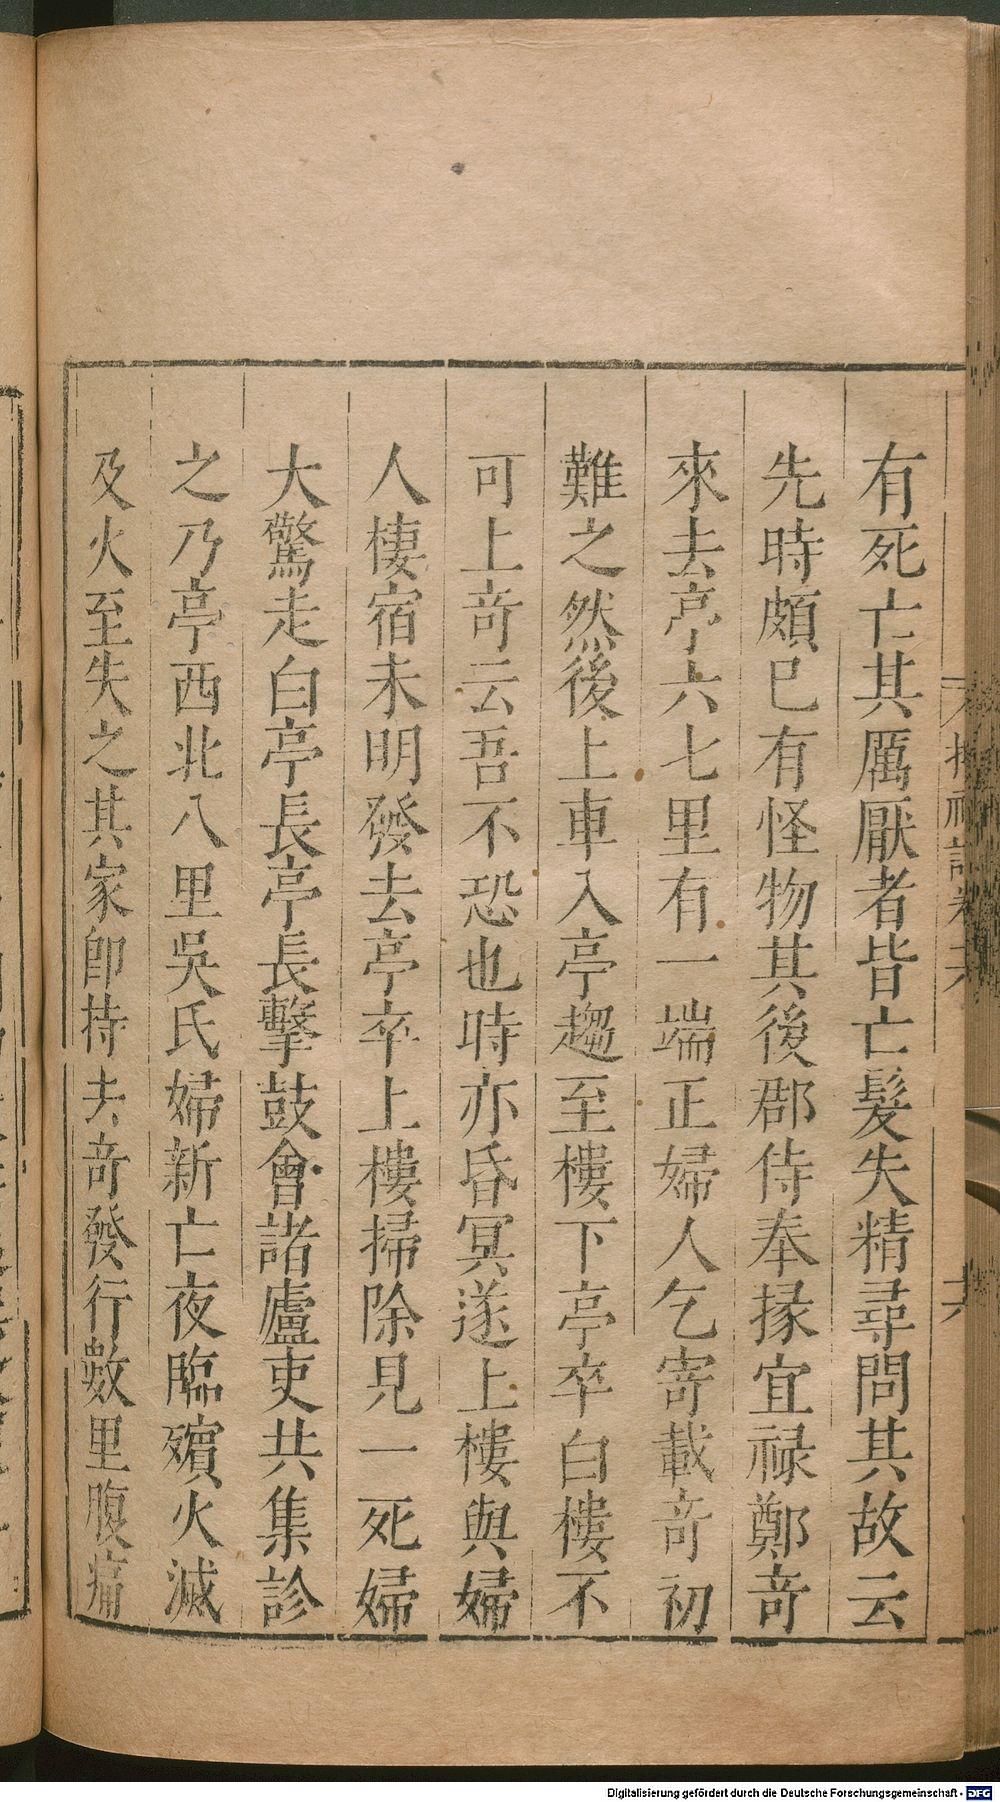 有死亡其厲厭者皆亡髮失精尋問其故云
先時頗巳有怪物其後郡侍奉掾宜祿鄭奇
來去亭六七里有一端正婦人乞寄載奇初
難之然後上車入亭趨至樓下亭卒白樓不
可上奇云吾不恐也時亦昏冥遂上樓與婦
人棲宿未明發去亭卒上樓掃除見一死婦
大驚走白亭長亭長擊鼓會諸廬吏共集診
之乃亭西北八里吳氏婦新亡夜臨殯火滅
及火至失之其家卽持去奇發行數里腹痛
Digitalisierung gefördert durch die Deutsche Forschungsgemeinschaft - DFG